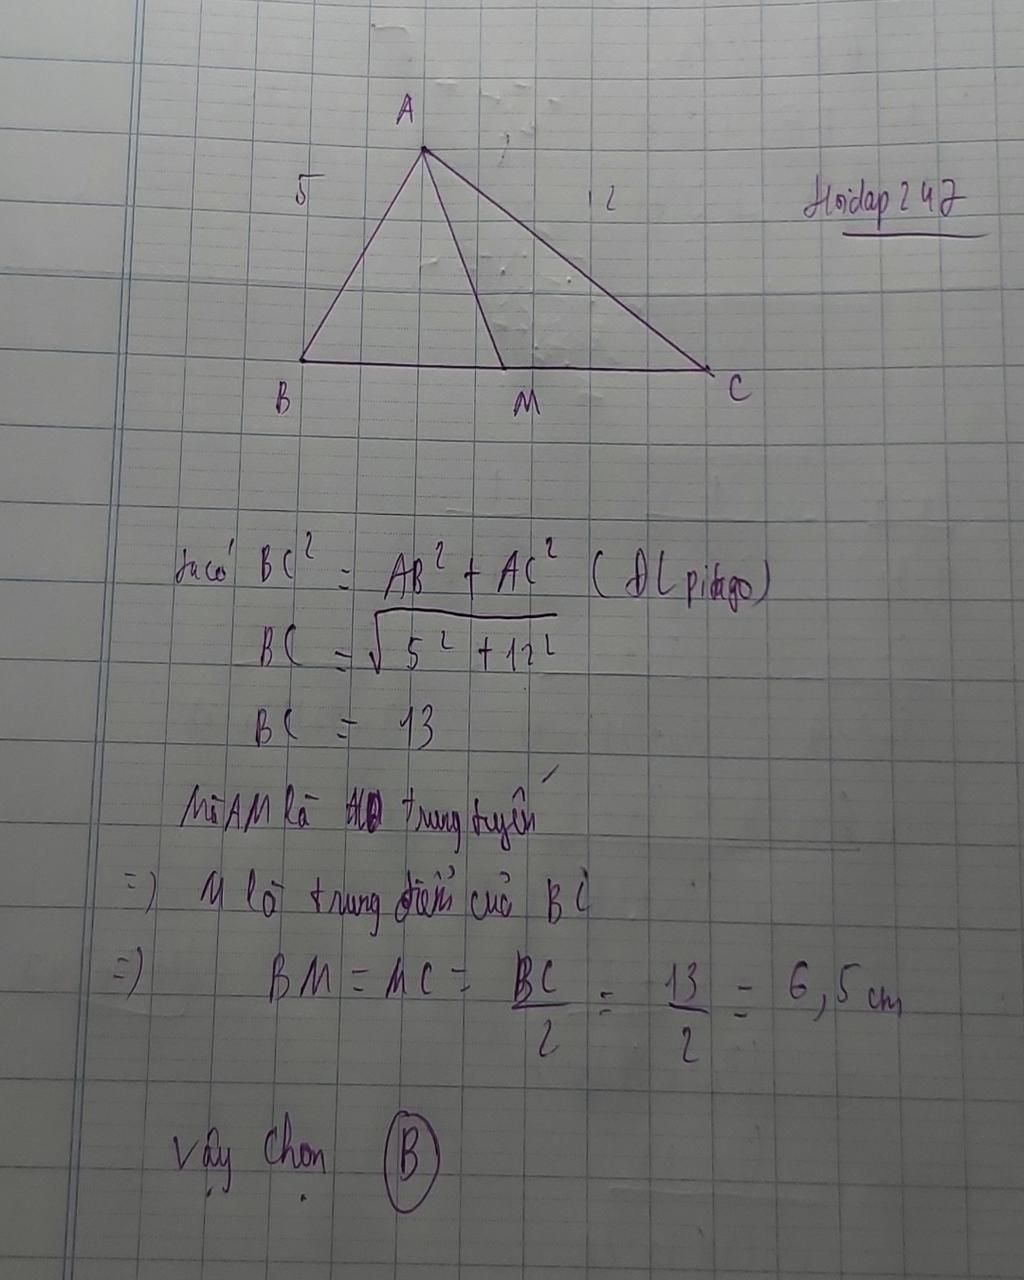 A
5
12
Hoidap247
B
M
C
ta có BC² = AB² + AC² (ĐL pitago)
BC = √5² + 12²
BC = 13
Mà AM là trung tuyến
=) M là trung điểm của BC
=) BM = MC = BC/2 = 13/2 = 6,5 cm
Vậy chọn B